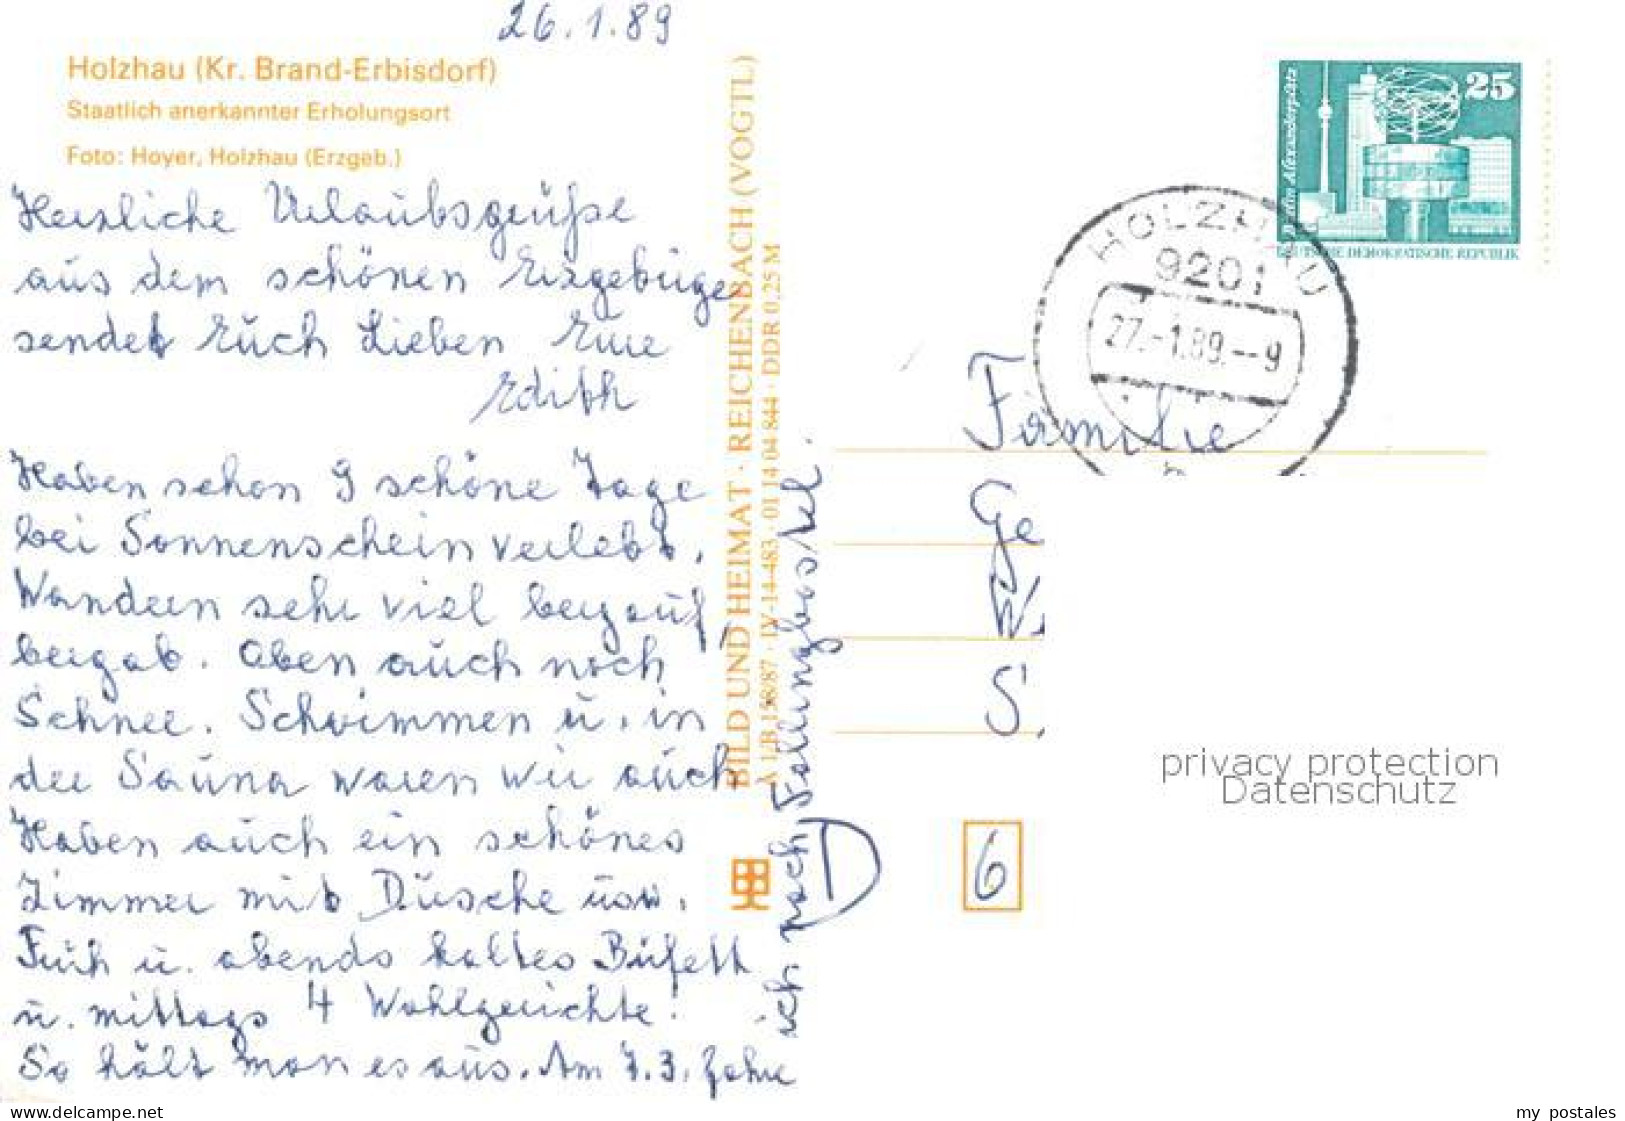 26.1.89
Holzhau (Kr. Brand-Erbisdorf)
Staatlich anerkannter Erholungsort
Foto: Hoyer, Holzhau (Erzgeb.)
Herzliche Urlaubsgrüße
aus dem schönen Erzgebirge
sendet Euch Lieben Eure
Edith
Haben schon 9 schöne Tage
bei Sonnenschein verlebt,
Wandern sehr viel bergauf,
bergab. Oben auch noch
Schnee. Schwimmen u. in
der Sauna waren wir auch
Haben auch ein schönes
Zimmer mit Dusche usw.
Früh u. abends kaltes Büfett
u. mittags 4 Wahlgerichte!
So hält man es aus. Am 7.3. fahre
ich nach Fallingbostel.
BILD UND HEIMAT · REICHENBACH (VOGTL)
A 1/B 158/87 · IV-14-483 · 01 14 04 844 · DDR 0,25 M
25
Berlin Alexanderplatz
DEUTSCHE DEMOKRATISCHE REPUBLIK
HOLZHAU
9201
27.-1.89.--9
Familie
Ge
W
S.
D
6
privacy protection
Datenschutz
www.delcampe.net
my_postales